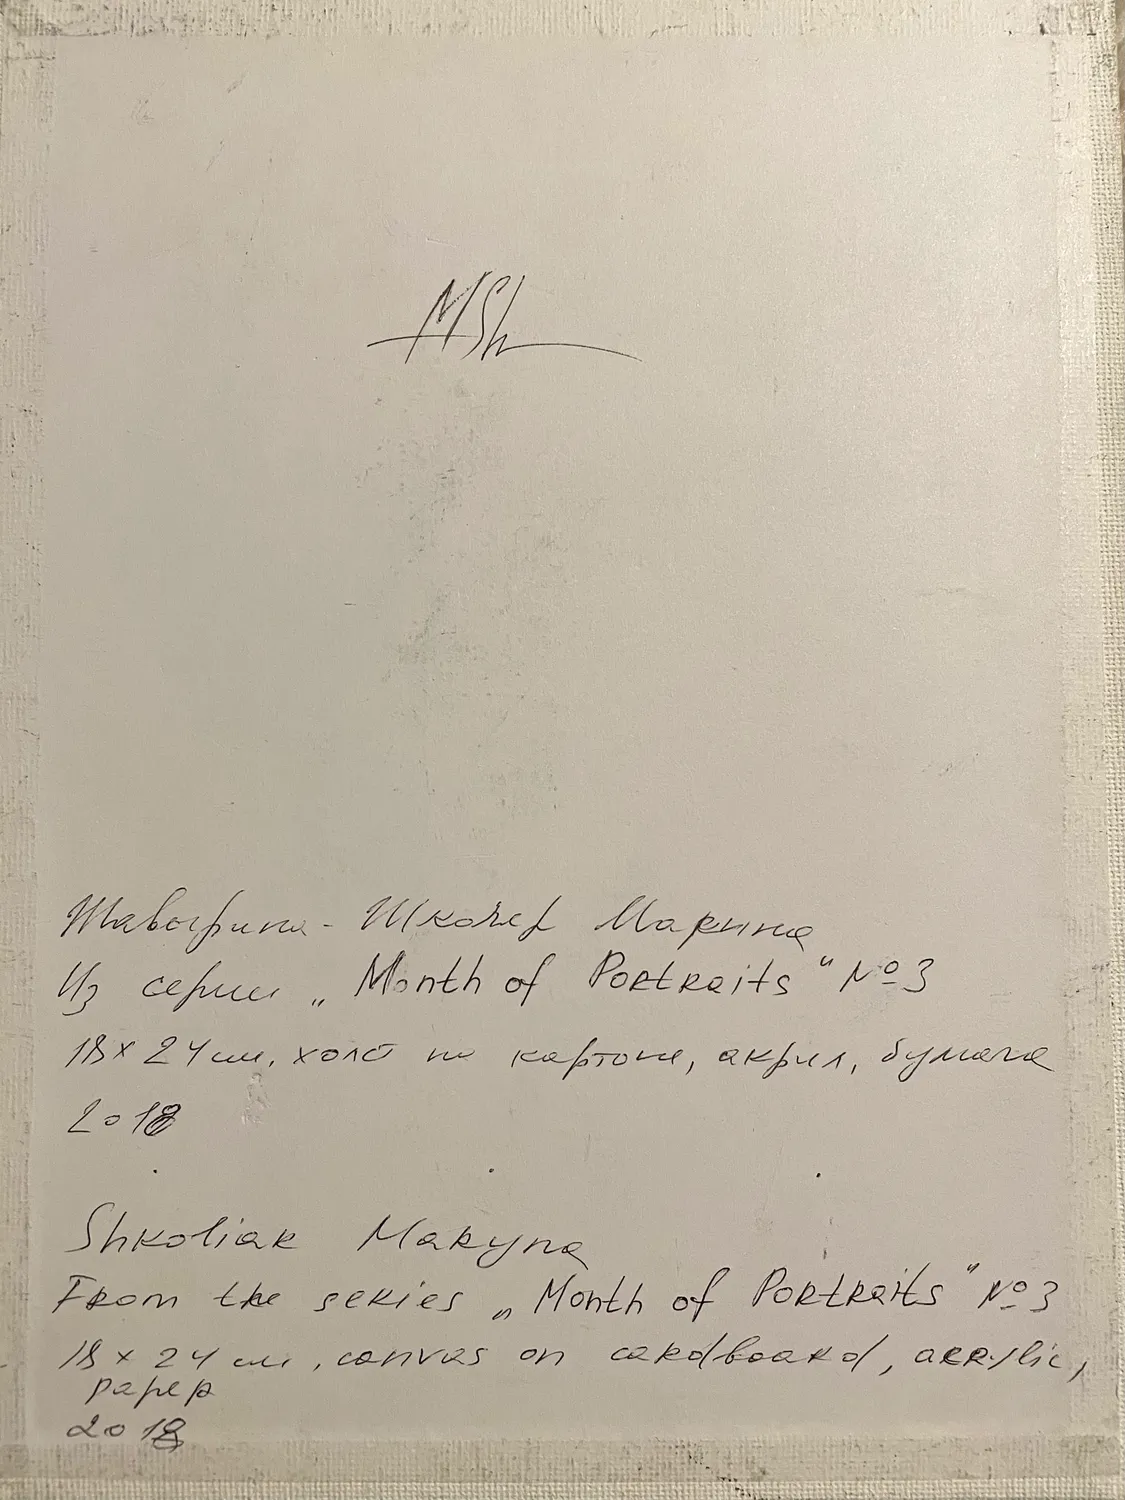 MSh
Марина
Из серии „Month of Portraits" №3
18 x 24 см, холст на картоне, акрил, бумага
2018
Shkoliak Maryna
From the series „Month of Portraits" №3
18 x 24 см, canvas on cardboard, acrylic,
paper
2018